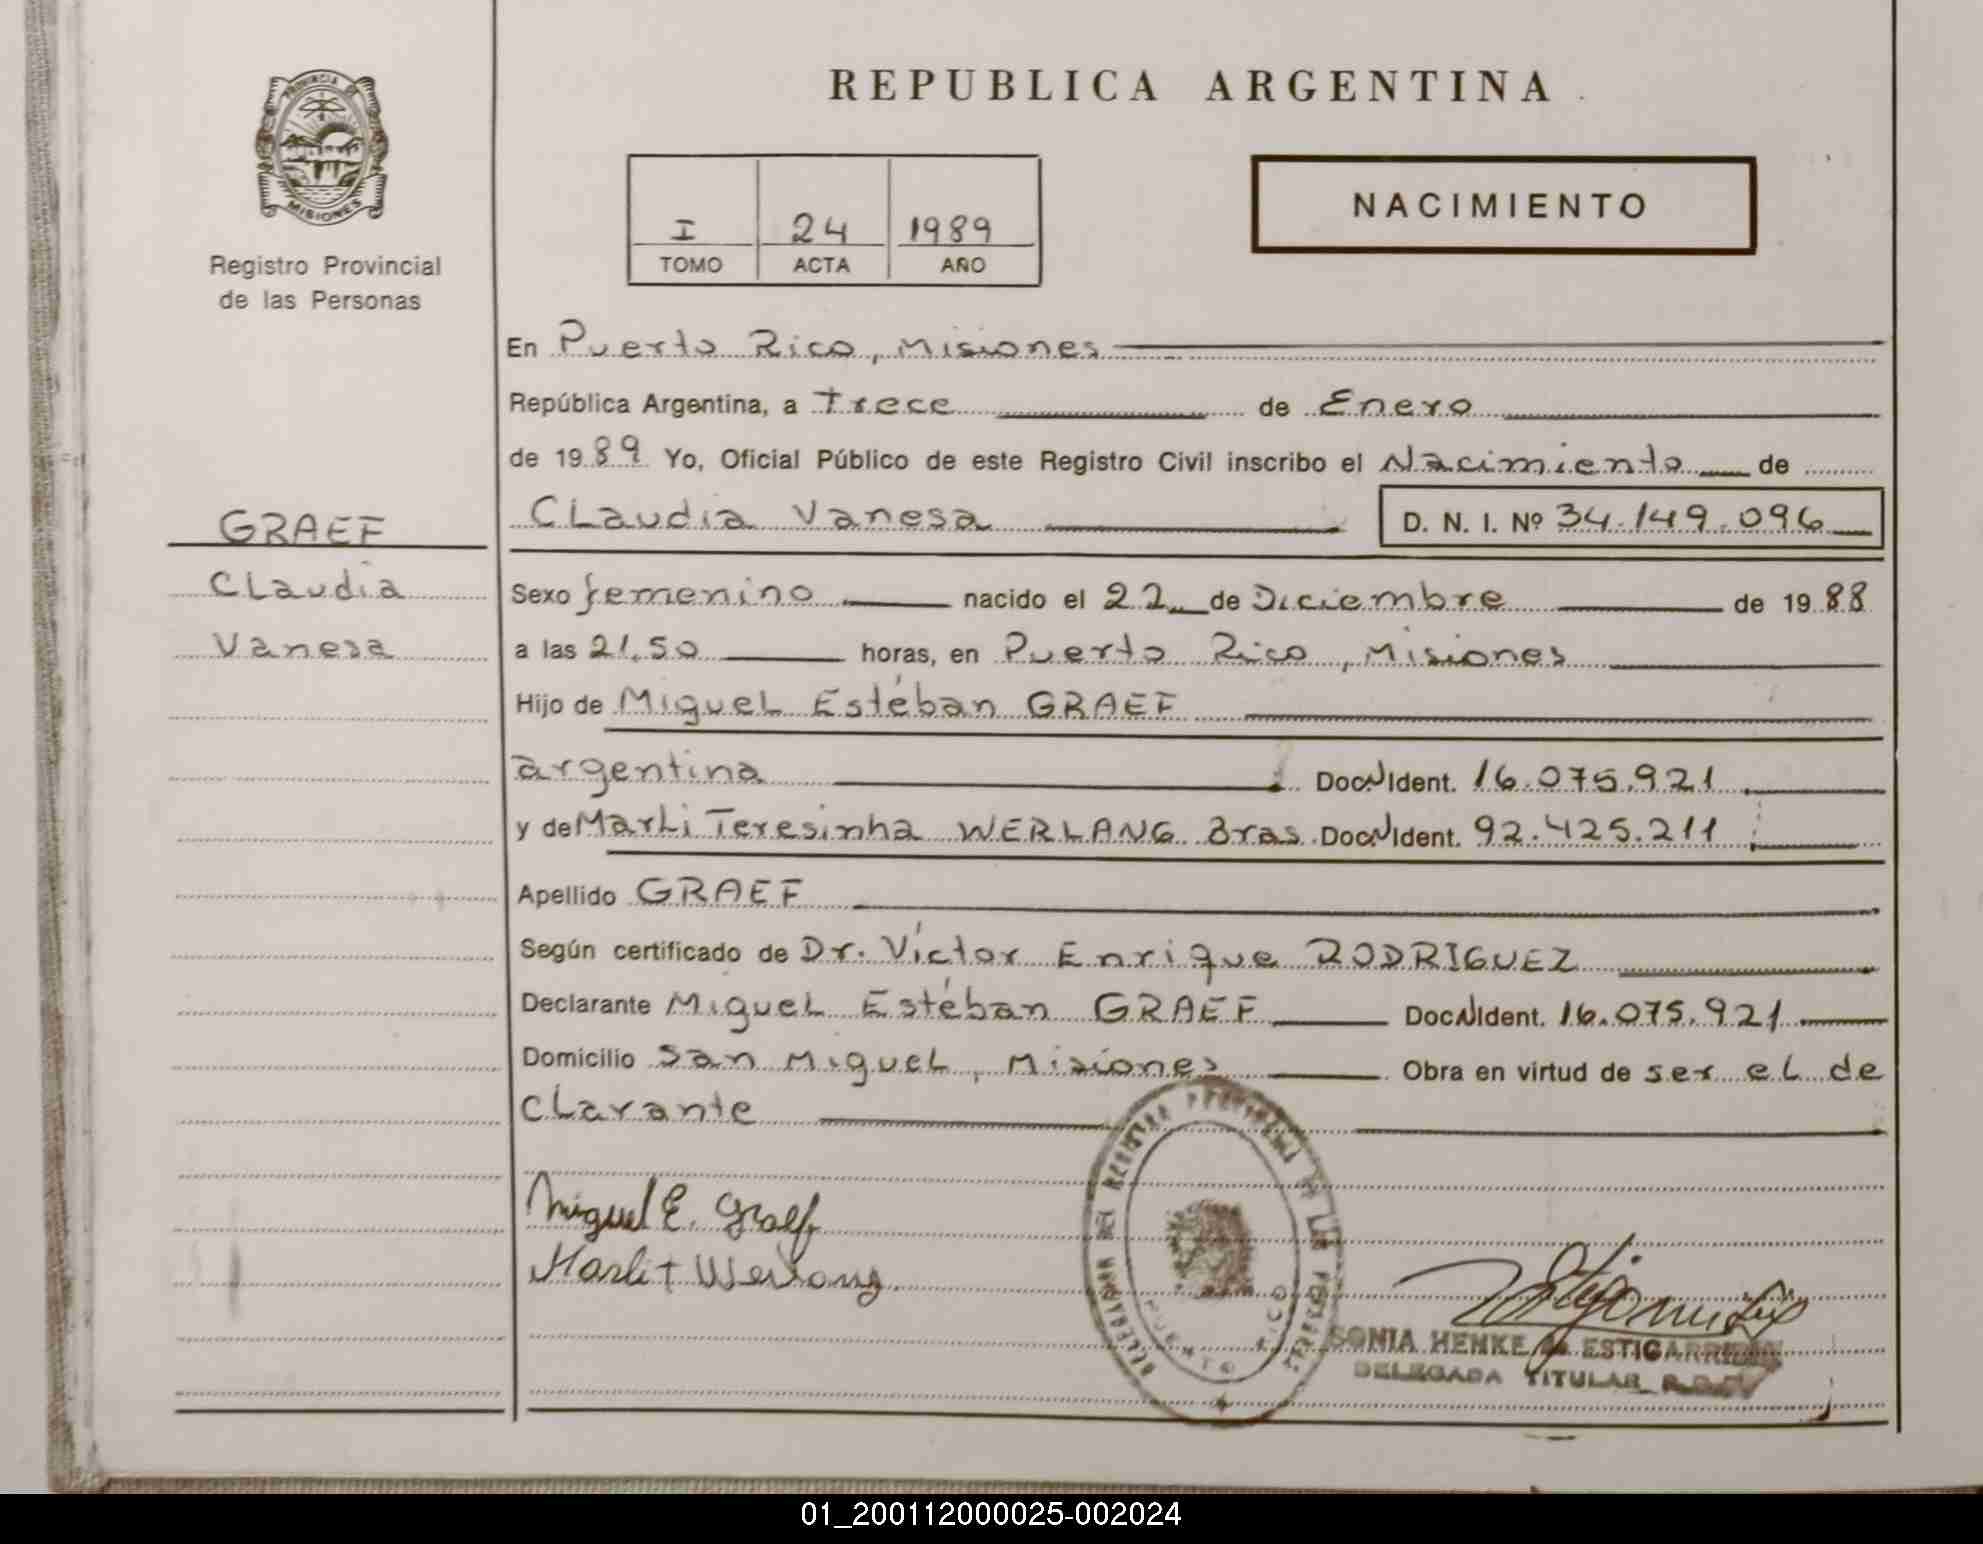 PROVINCIA DE
MISIONES
Registro Provincial
de las Personas
GRAEF
Claudia
Vanesa
REPUBLICA ARGENTINA
I 24 1989
TOMO ACTA AÑO
NACIMIENTO
En Puerto Rico, Misiones
República Argentina, a Trece de Enero
de 1989 Yo, Oficial Público de este Registro Civil inscribo el Nacimiento de
Claudia Vanesa D. N. I. Nº 34.149.096
Sexo femenino nacido el 22 de Diciembre de 1988
a las 21.50 horas, en Puerto Rico, Misiones
Hijo de Miguel Estéban GRAEF
argentina Doc. Ident. 16.075.921
y de Marli Teresinha WERLANG Bras. Doc. Ident. 92.425.211
Apellido GRAEF
Según certificado de Dr. Víctor Enrique RODRIGUEZ
Declarante Miguel Estéban GRAEF Doc. Ident. 16.075.921
Domicilio San Miguel, Misiones Obra en virtud de ser el de
clarante
Miguel E. Graef
Marli T Werlang
DELEGACION DEL REGISTRO PROVINCIAL DE LAS PERSONAS
PUERTO RICO
SONIA HENKE de ESTIGARRIBIA
DELEGADA TITULAR
01_200112000025-002024